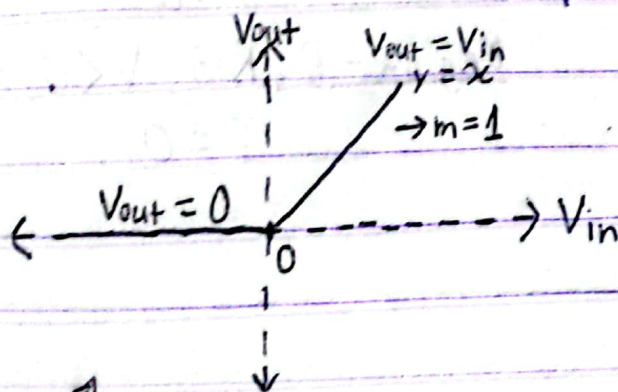 Vout
Vout = Vin
y = x
→ m = 1
Vout = 0
Vin
0